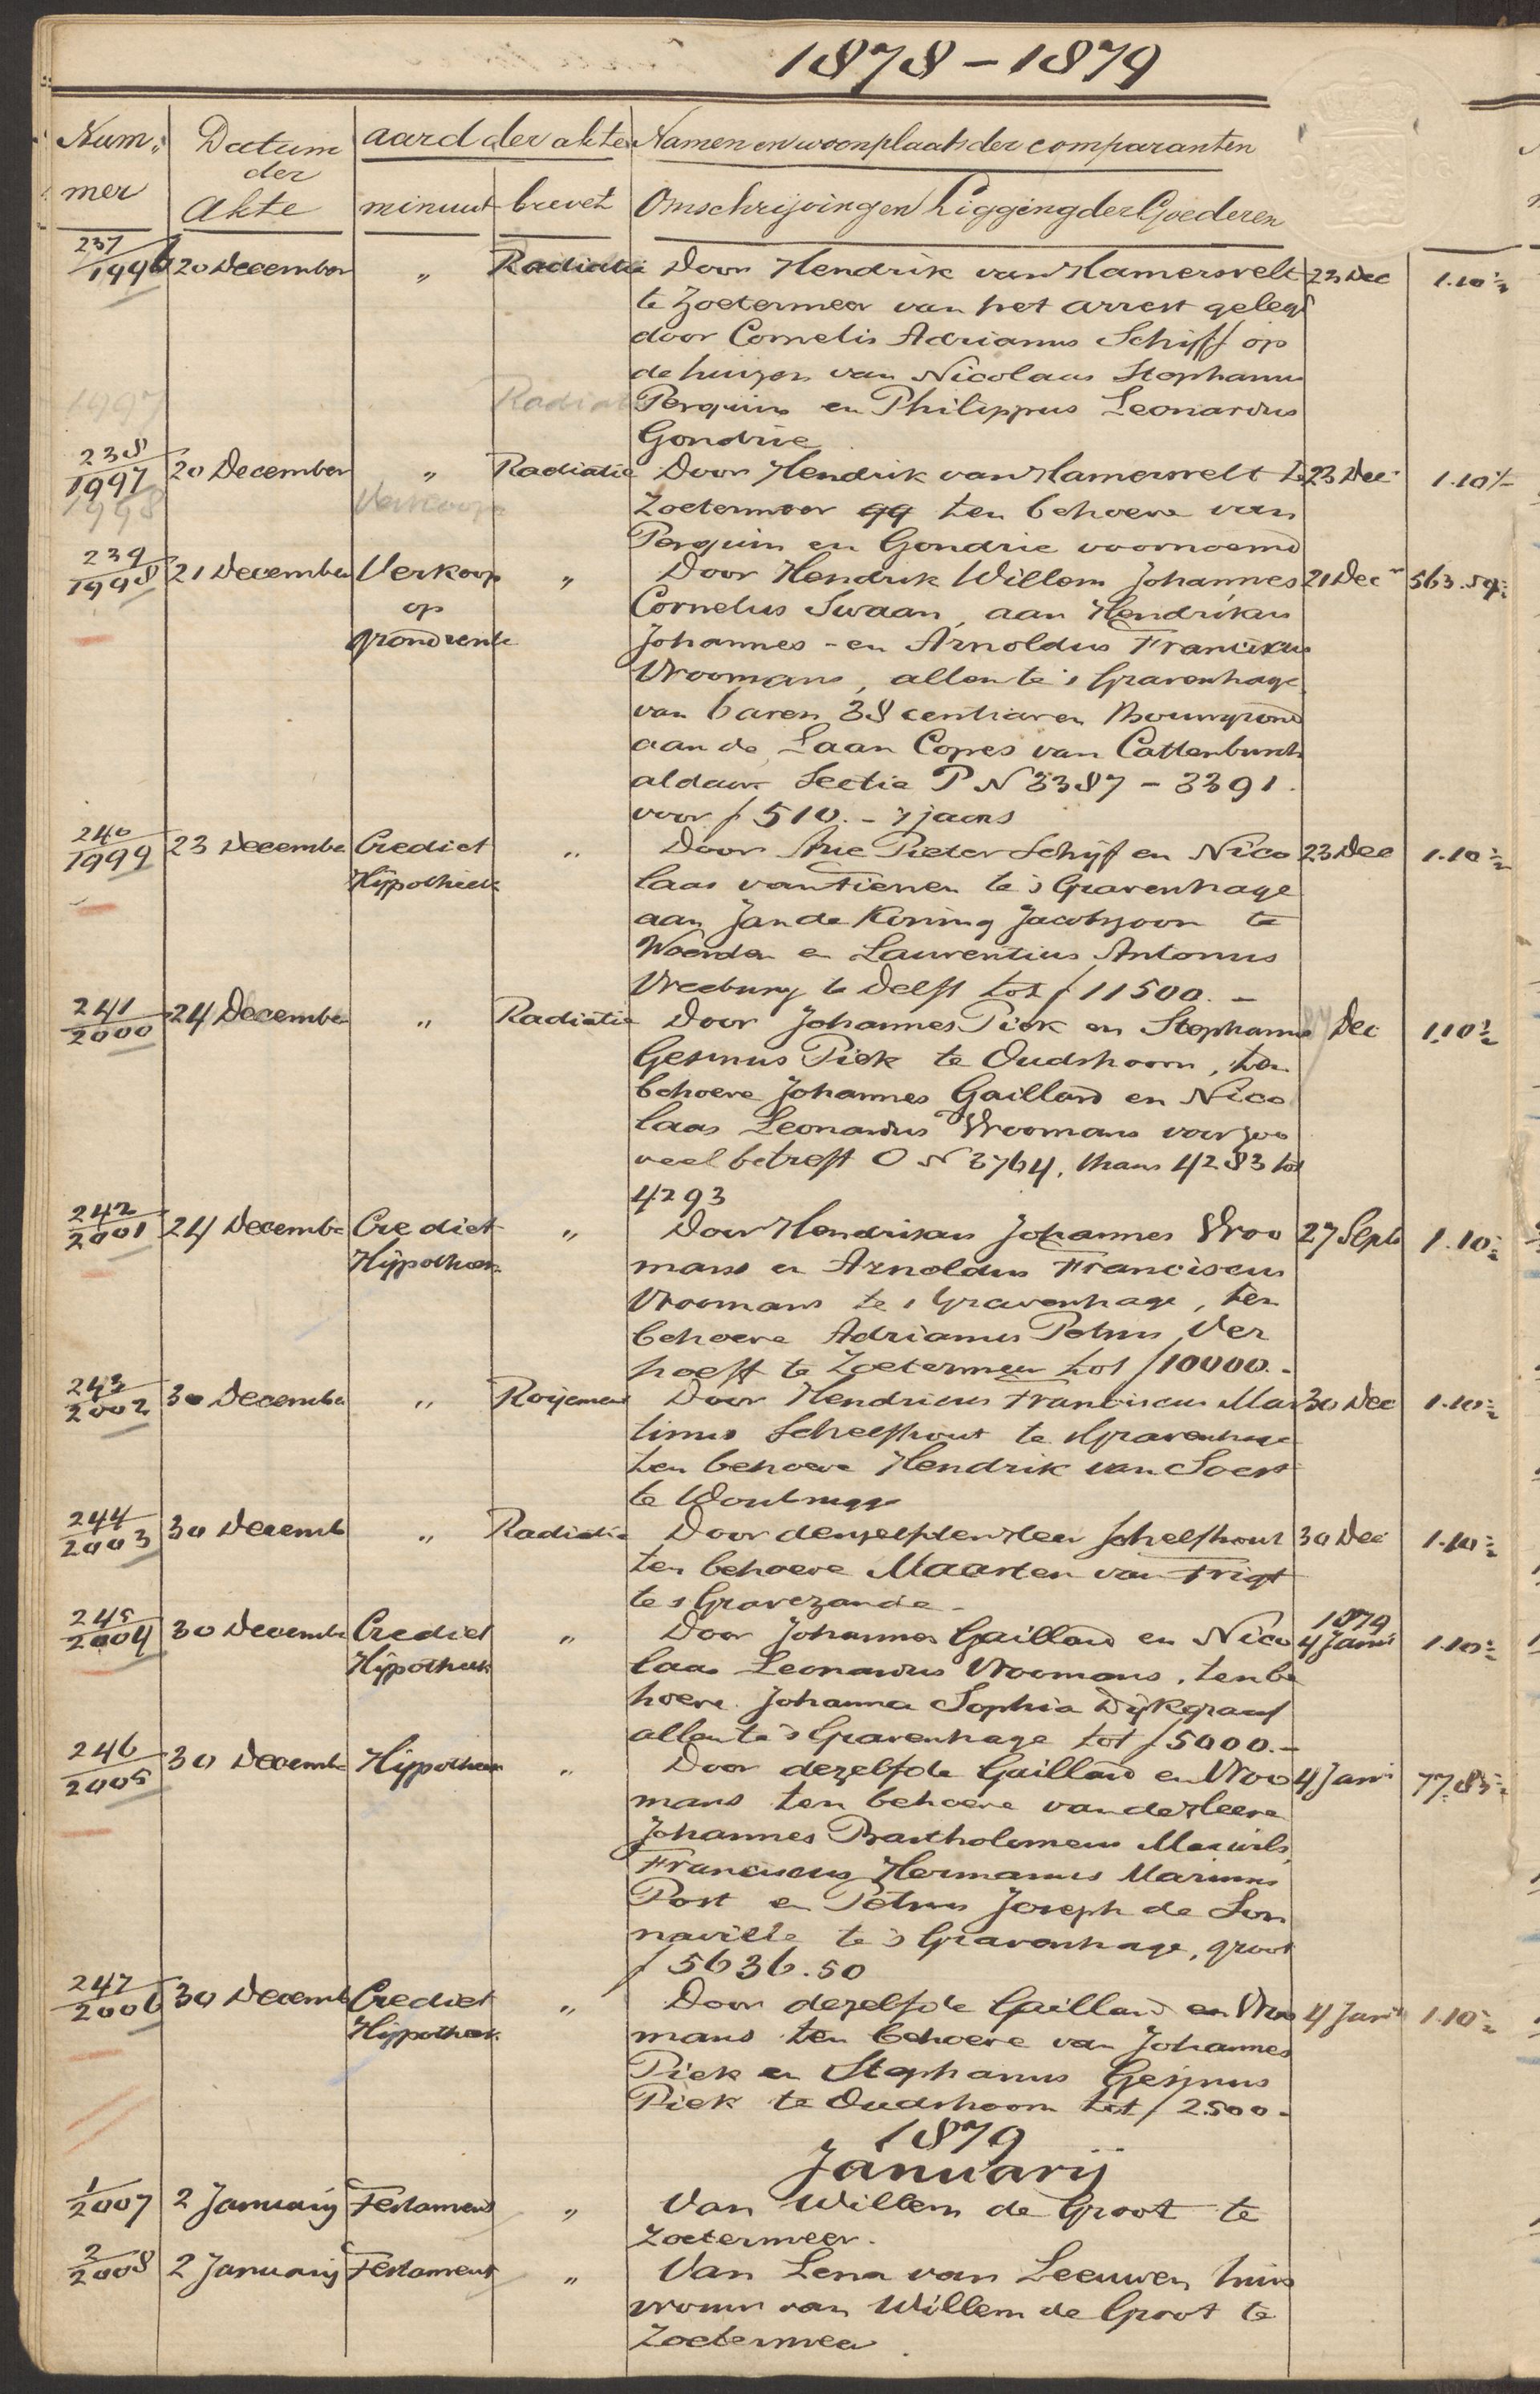 1878 - 1879
Num„ Datum aard der akte Namen en woonplaats der comparanten
mer der
Akte minuut brevet Omschrijving en Ligging der Goederen
237/1996 20 December „ Radiatie Door Hendrik van Hamersvelt 23 Dec 1.10½
te Zoetermeer van het arrest gelegd
door Cornelis Adrianus Schijff op
de huizen van Nicolaas Stephanus
1997 Radiatie Perquin en Philippus Leonardus
Gondrie
238/1997 20 December „ Radiatie Door Hendrik van Hamersvelt te 23 Dec 1.10½
1998 Verkoop Zoetermeer qq ten behoeve van
Perquin en Gondrie voornoemd
239/1998 21 December Verkoop „ Door Hendrik Willem Johannes 21 Dec 563.59½
op Cornelus Swaan, aan Hendrikus
grondrente Johannes - en Arnoldus Franciskus
Vroomans, allen te 's Gravenhage,
van 6 aren 38 centiaren Bouwgrond
aan de Laan Copes van Cattenburch
aldaar Sectie P N 3387 - 3391.
voor ƒ 510. - 's jaars
240/1999 23 Decembe Crediet „ Door Arie Pieter Schijf en Nico 23 Dec 1.10½
Hijpotheek laas van Tienen te 's Gravenhage
aan Jan de Koning Jacobzoon te
Woerden en Laurentius Antonius
Vreeburg te Delft tot ƒ 11500. -
241/2000 24 Decembe „ Radiatie Door Johannes Piek en Stephanus 27 Dec 1.10½
Gesinus Piek te Oudshoorn, ten
behoeve Johannes Gaillard en Nico
laas Leonardus Vroomans voor zoo
veel betreft O N 3764, thans 4283 tot
4293
242/2001 24 Decembe Crediet „ Door Hendrikus Johannes Vroo 27 Sept 1.10½
Hijpotheek mans en Arnoldus Franciscus
Vroomans te 's Gravenhage, ten
behoeve Adrianus Petrus Ver
hoeff te Zoetermeer tot ƒ 10000.-
243/2002 30 Decembe „ Roijement Door Hendricus Franciscus Mar 30 Dec 1.10½
tinus Schelfhout te 's Gravenhage
ten behoeve Hendrik van Soest
te Woubrugge
244/2003 30 Decemb „ Radiatie Door denzelfden Heer Schelfhout 30 Dec 1.10½
ten behoeve Maarten van Trigt
te 's Gravezande -
1879
245/2004 30 Decembe Crediet „ Door Johannes Gaillard en Nico 4 Januij 1.10½
Hijpotheek laas Leonardus Vroomans, ten be
hoeve Johanna Sophia Dijkgraaf
allen te 's Gravenhage tot ƒ 5000.-
246/2005 30 Decembe Hijpotheek „ Door dezelfde Gaillard en Vroo 4 Jan 77.83½
mans ten behoeve van de Heere
Johannes Bartholomeus
Franciscus Hermanus Marinus
Post en Petrus Joseph de Son
naville te 's Gravenhage, groot
ƒ 5636.50
247/2006 30 Decemb Crediet „ Door dezelfde Gaillard en Vroo 4 Jan 1.10½
Hijpotheek mans ten behoeve van Johannes
Piek en Stephanus Gesinus
Piek te Oudshoorn tot ƒ 2500-
1879
Januarij
1/2007 2 Januarij Testament „ Van Willem de Groot te
Zoetermeer.
2/2008 2 Januarij Testament „ Van Lena van Leeuwen huis
vrouw van Willem de Groot te
Zoetermeer.